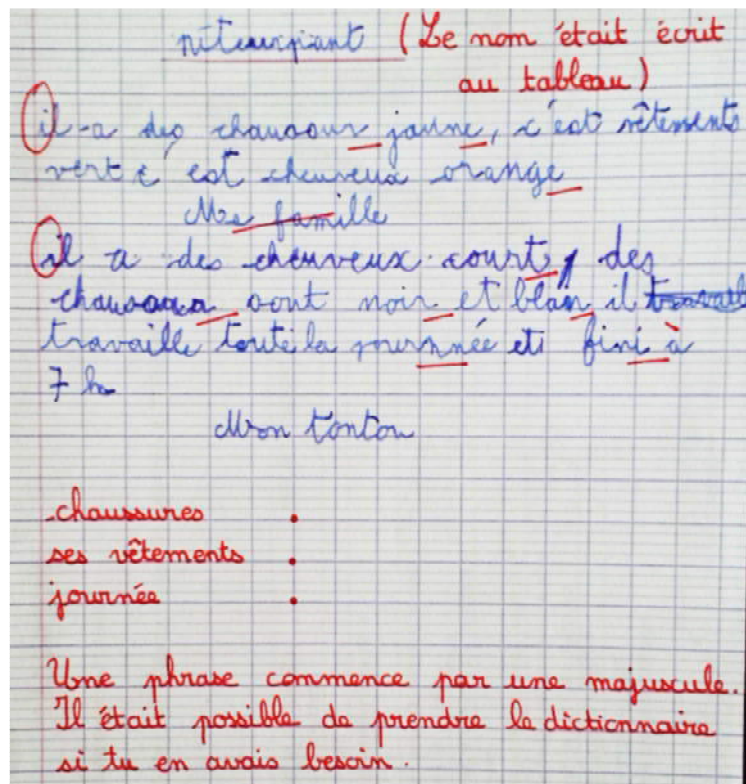 niteurpiant (Le nom était écrit
au tableau)
il a des chausour jaune, c'est vêtements
vert c'est cheuveux orange
Me famille
il a des cheuveux court, des
sont noir et blan il
travaille toute la journnée et fini à
7 h
Mon tonton
chaussures :
ses vêtements :
journée :
Une phrase commence par une majuscule.
Il était possible de prendre le dictionnaire
si tu en avais besoin.